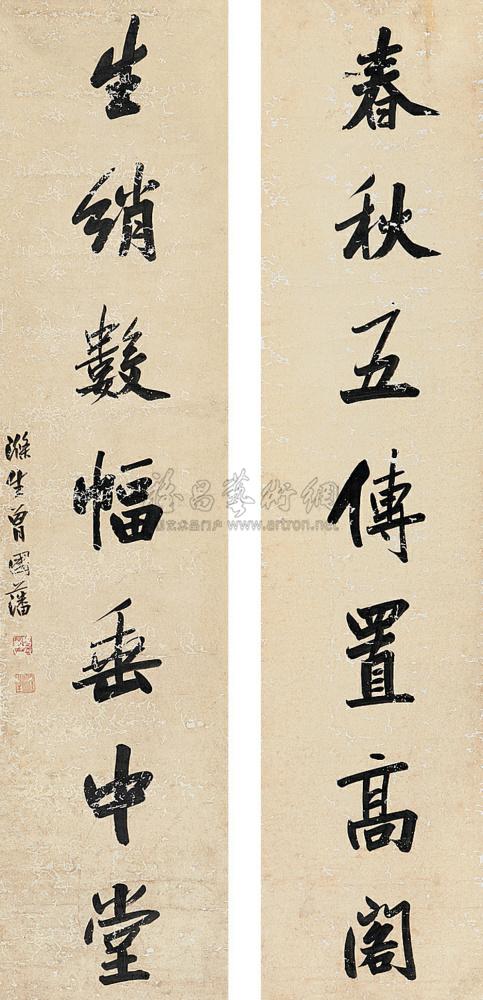 春秋五傳置高閣
生綃數幅垂中堂
滌生曾國藩
雅昌藝術網
www.artron.net